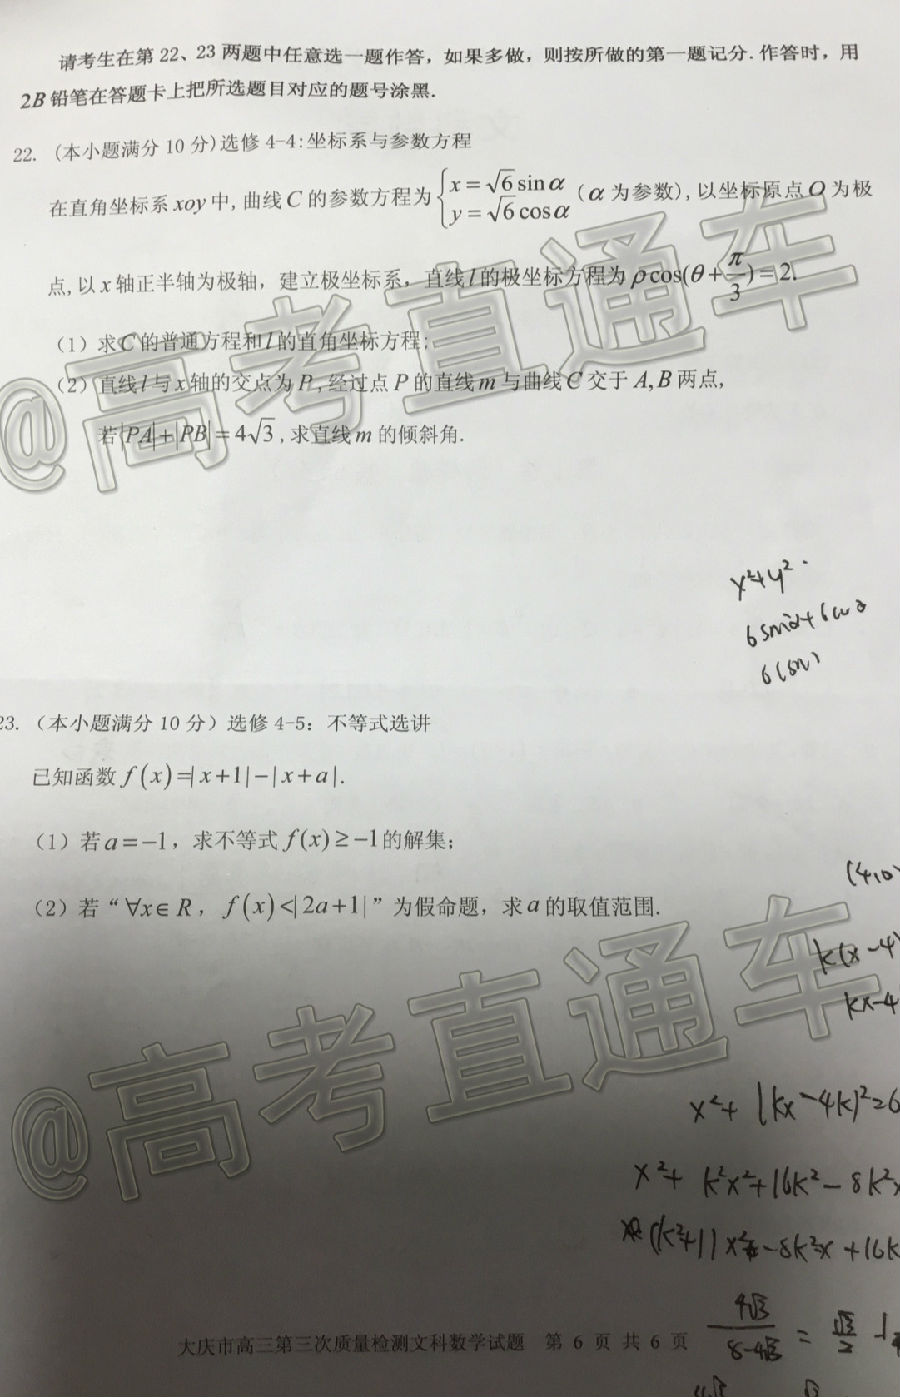 请考生在第 22、23 两题中任意选一题作答，如果多做，则按所做的第一题记分. 作答时，用
2B 铅笔在答题卡上把所选题目对应的题号涂黑.
22. (本小题满分 10 分)选修 4-4:坐标系与参数方程
在直角坐标系 xoy 中, 曲线 C 的参数方程为 { x = √6 sin α y = √6 cos α (α 为参数), 以坐标原点 O 为极
点, 以 x 轴正半轴为极轴，建立极坐标系，直线 l 的极坐标方程为 ρcos(θ+π/3)=2.
(1) 求 C 的普通方程和 l 的直角坐标方程;
(2) 直线 l 与 x 轴的交点为 P, 经过点 P 的直线 m 与曲线 C 交于 A,B 两点,
若|PA|+|PB|=4√3, 求直线 m 的倾斜角.
@高考直通车
x²+y²
6sin²α+6cos²
23. (本小题满分 10 分) 选修 4-5: 不等式选讲
已知函数 f(x)=|x+1|-|x+a|.
(1) 若 a=-1, 求不等式 f(x)≥-1 的解集;
(2) 若 “∀x∈R, f(x)<|2a+1|” 为假命题, 求 a 的取值范围.
(4,0)
k(x-4)
kx-4
@高考直通车
x²+(kx-4k)²=6
x²+k²x²+16k²-8k²x
(k²+1)x²-8k²x+16k
4√3
大庆市高三第三次质量检测文科数学试题 第 6 页 共 6 页